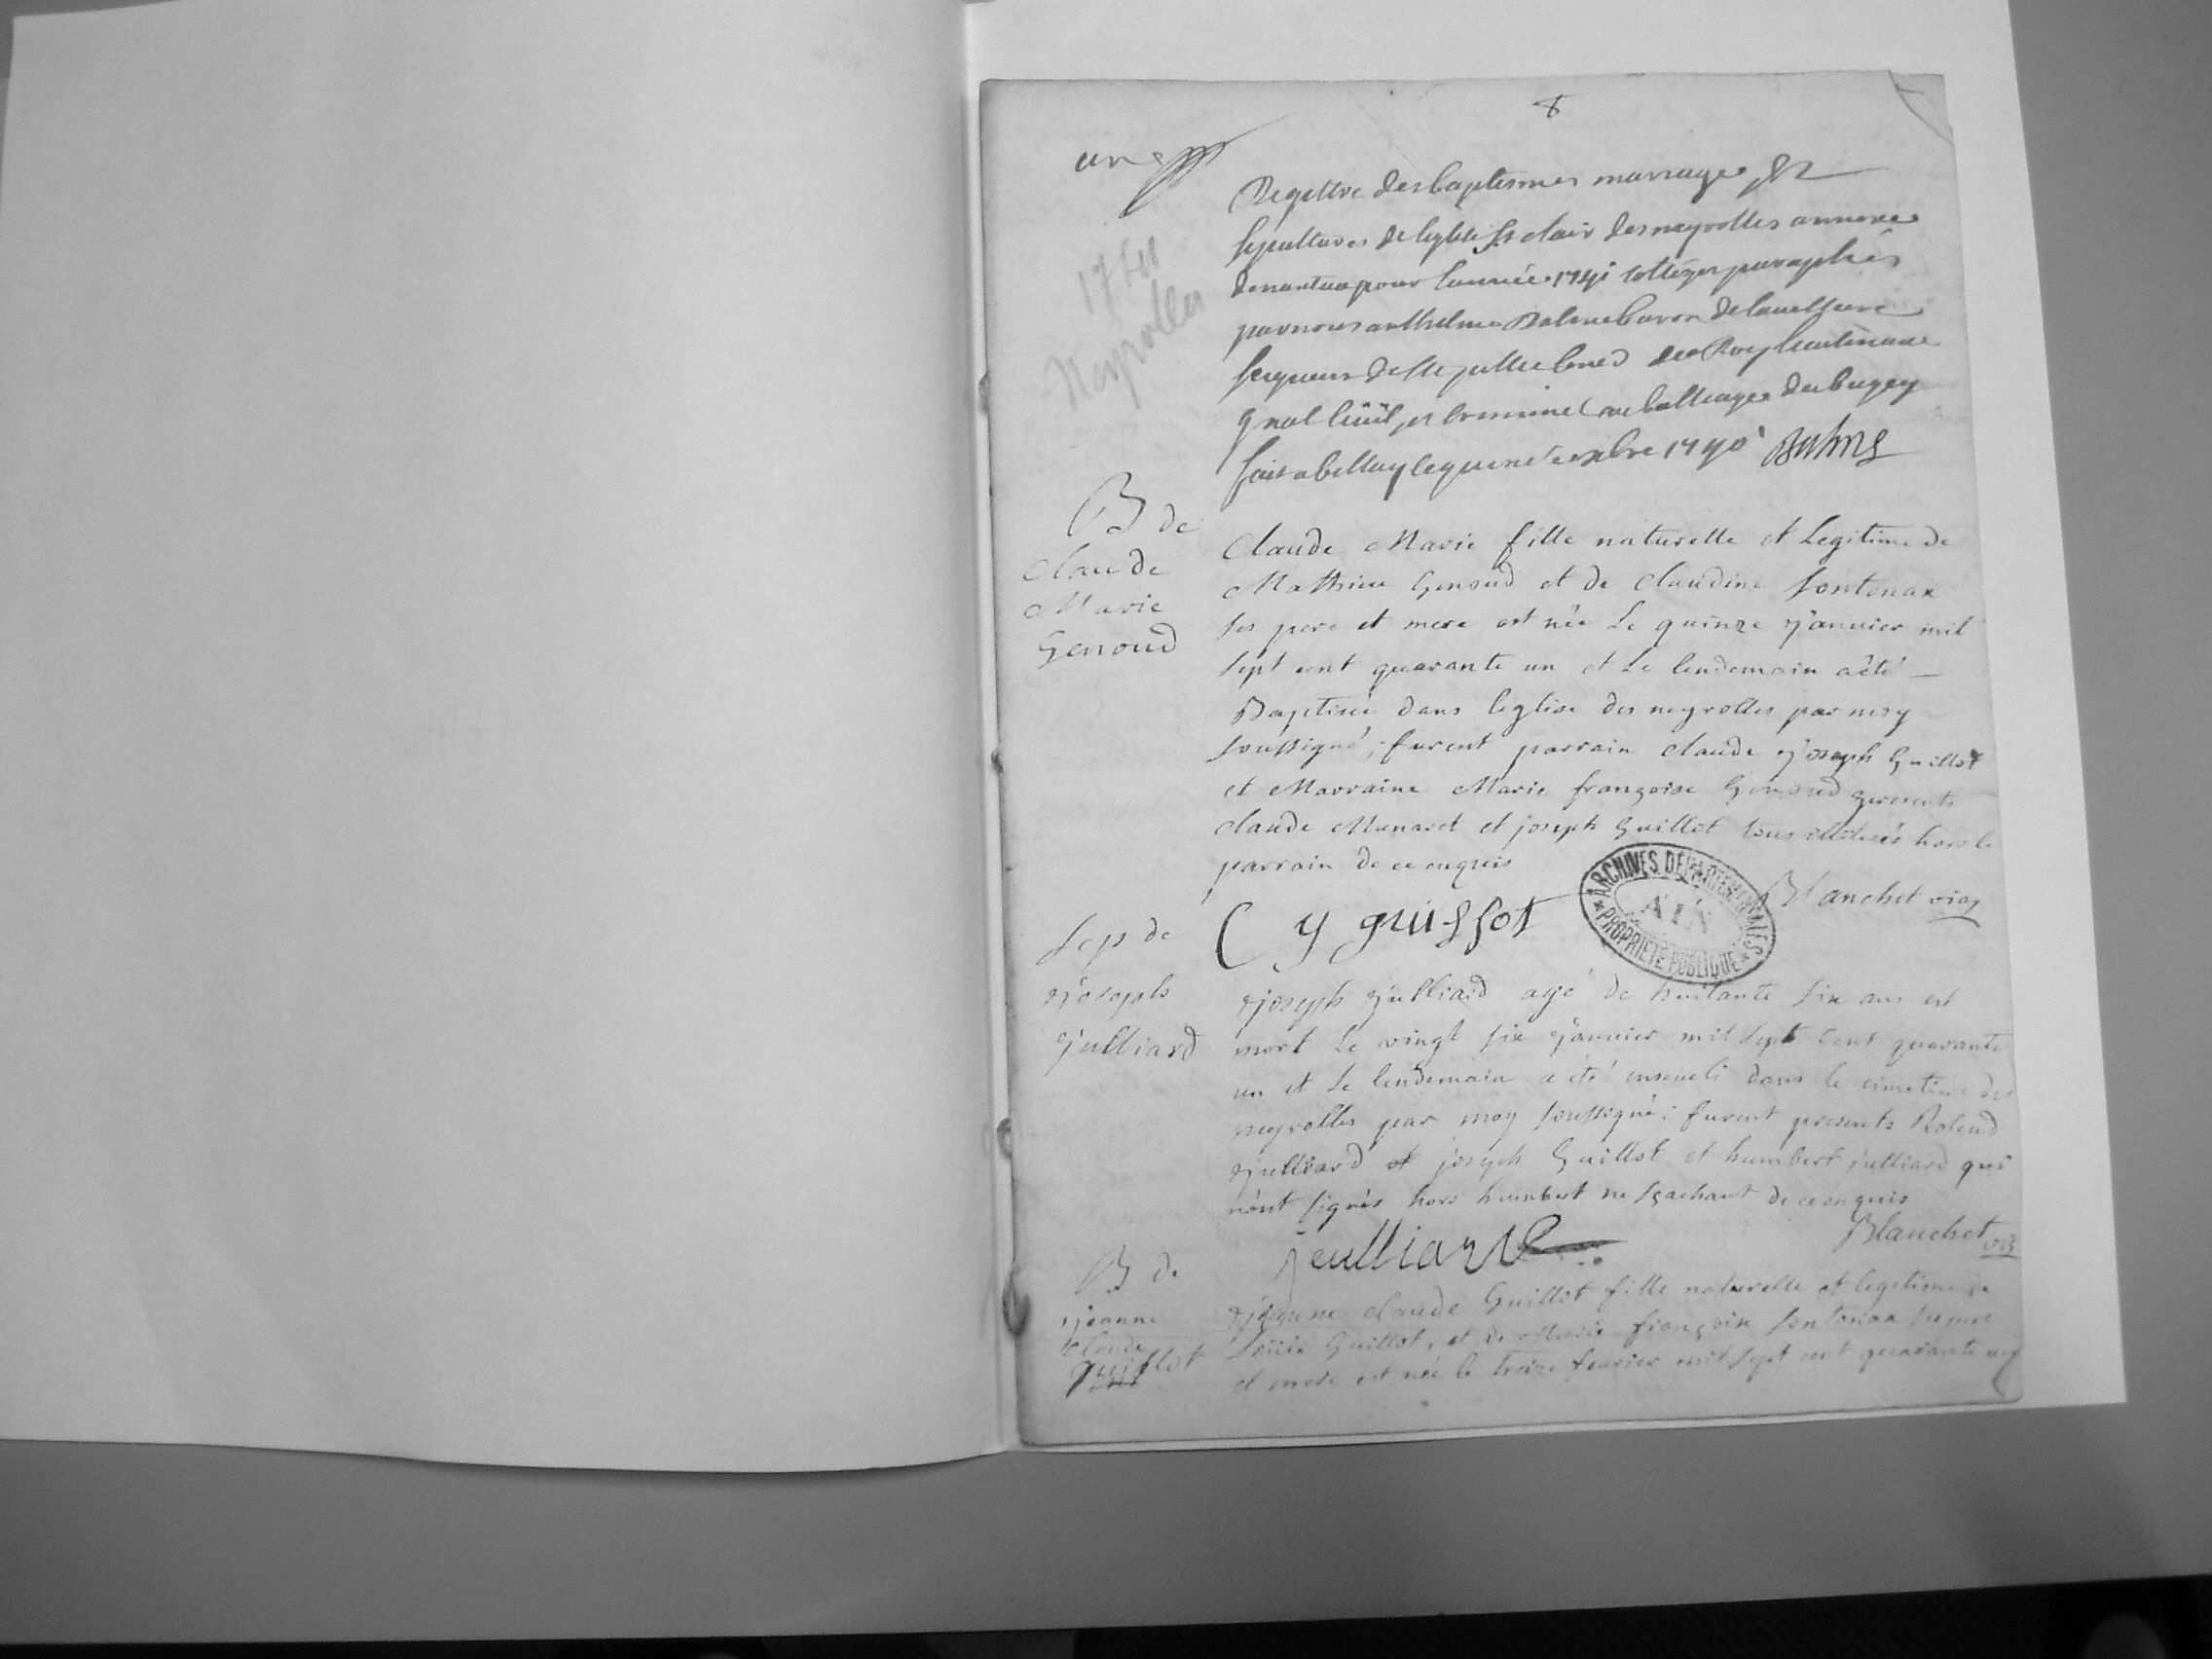 8
une
1741
Neyrolles
Registre des baptesmes mariages et
sepultures de leglise st clair des neyrolles annexe
de nantua pour lannée 1741 cottéz et paraphés
par nous anthelme Balme baron de
seigneur de ste julie coner du Roy lieutenant
gnal civil et criminel au balliage du bugey
fait a bellay le xbre 1740 Balme
B de
claude
Marie
Genoud
Claude Marie fille naturelle et Legitime de
Mathieu Genoud et de claudine fontenax
ses pere et mere est née Le quinze janvier mil
sept cent quarante un et Le lendemain a été
Baptisée dans leglise des neyrolles par moy
soussigné, furent parrain claude joseph Guillot
et Marraine Marie françoise Genoud presents
claude Munaret et joseph Guillot tous illiterés hors le
parrain de ce enquis
Blanchet vic
C y guillot
ARCHIVES DÉPARTEMENTALES
AIN
PROPRIÉTÉ PUBLIQUE
sep de
joseph
julliard
joseph julliard agé de huitante six ans est
mort Le vingt six janvier mil sept cent quarante
un et Le lendemain a été enseveli dans le cimetiere des
neyrolles par moy soussigné; furent presents Roland
julliard et joseph Guillot et humbert julliard qui
n'ont signés hors humbert ne sçachant de ce enquis
Blanchet vic
jeulliard
B de
jeanne
claude
guillot
jeanne claude Guillot fille naturelle et legitime de
Loüis Guillot, et de Marie françoise fontenax ses pere
et mere est née le treize fevrier mil sept cent quarante un